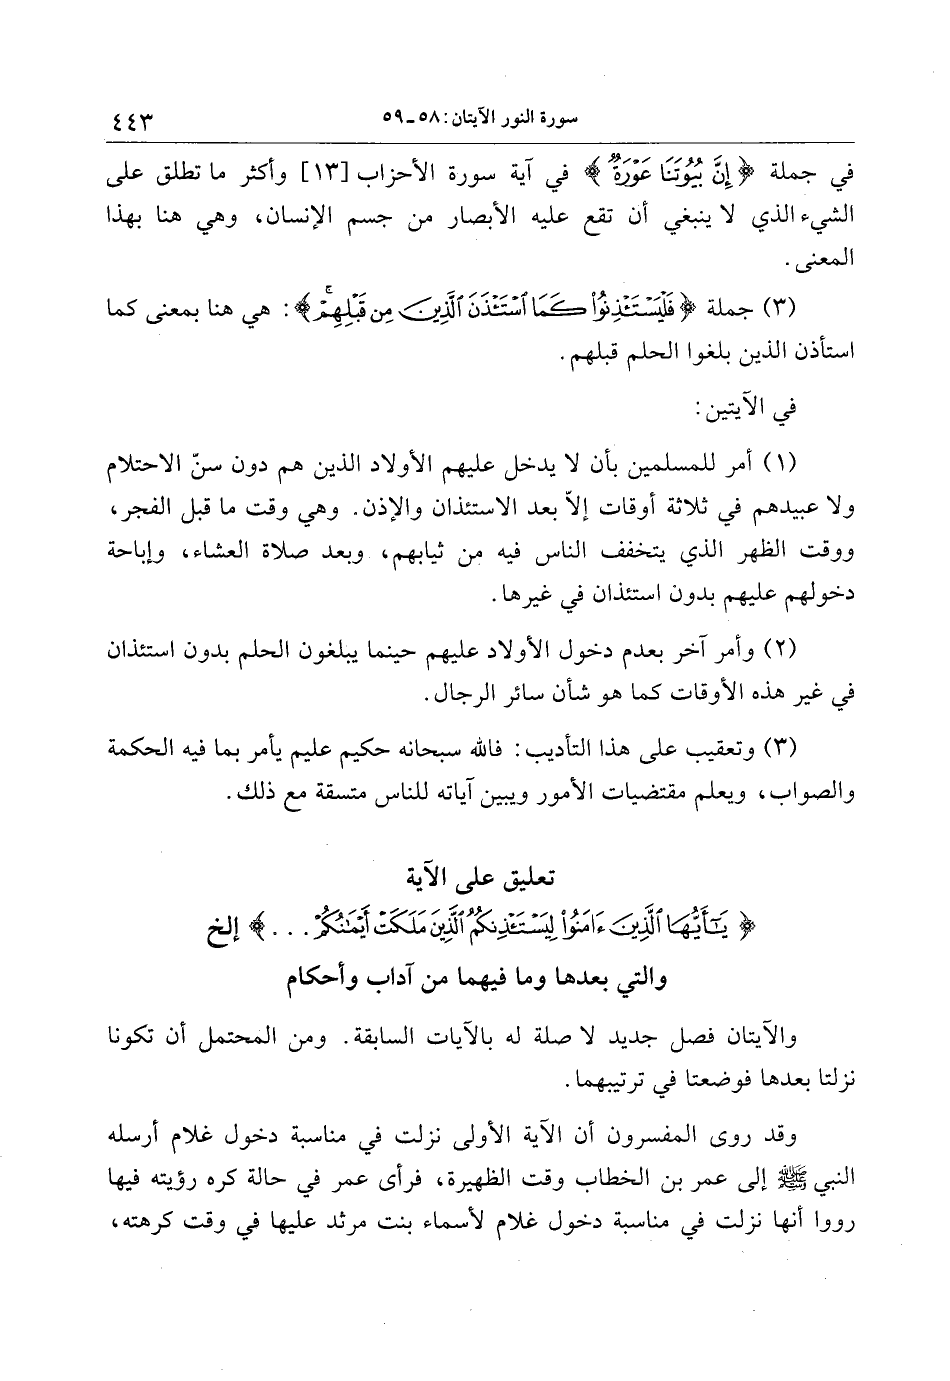 سورة النور الآيتان: ٥٨ـ٥٩ ٤٤٣
في جملة ﴿إِنَّ بُيُوتَنَا عَوْرَةٌ﴾ في آية سورة الأحزاب [١٣] وأكثر ما تطلق على
الشيء الذي لا ينبغي أن تقع عليه الأبصار من جسم الإنسان، وهي هنا بهذا
المعنى.
(٣) جملة ﴿فَلْيَسْتَـْٔذِنُوا۟ كَمَا ٱسْتَـْٔذَنَ ٱلَّذِينَ مِن قَبْلِهِمْۚ﴾: هي هنا بمعنى كما
استأذن الذين بلغوا الحلم قبلهم.
في الآيتين:
(١) أمر للمسلمين بأن لا يدخل عليهم الأولاد الذين هم دون سنّ الاحتلام
ولا عبيدهم في ثلاثة أوقات إلاّ بعد الاستئذان والإذن. وهي وقت ما قبل الفجر،
ووقت الظهر الذي يتخفف الناس فيه من ثيابهم، وبعد صلاة العشاء، وإباحة
دخولهم عليهم بدون استئذان في غيرها.
(٢) وأمر آخر بعدم دخول الأولاد عليهم حينما يبلغون الحلم بدون استئذان
في غير هذه الأوقات كما هو شأن سائر الرجال.
(٣) وتعقيب على هذا التأديب: فالله سبحانه حكيم عليم يأمر بما فيه الحكمة
والصواب، ويعلم مقتضيات الأمور ويبين آياته للناس متسقة مع ذلك.
تعليق على الآية
﴿يَـٰٓأَيُّهَا ٱلَّذِينَ ءَامَنُوا۟ لِيَسْتَـْٔذِنكُمُ ٱلَّذِينَ مَلَكَتْ أَيْمَـٰنُكُمْ...﴾ إلخ
والتي بعدها وما فيهما من آداب وأحكام
والآيتان فصل جديد لا صلة له بالآيات السابقة. ومن المحتمل أن تكونا
نزلتا بعدها فوضعتا في ترتيبهما.
وقد روى المفسرون أن الآية الأولى نزلت في مناسبة دخول غلام أرسله
النبي ﷺ إلى عمر بن الخطاب وقت الظهيرة، فرأى عمر في حالة كره رؤيته فيها
رووا أنها نزلت في مناسبة دخول غلام لأسماء بنت مرثد عليها في وقت كرهته،